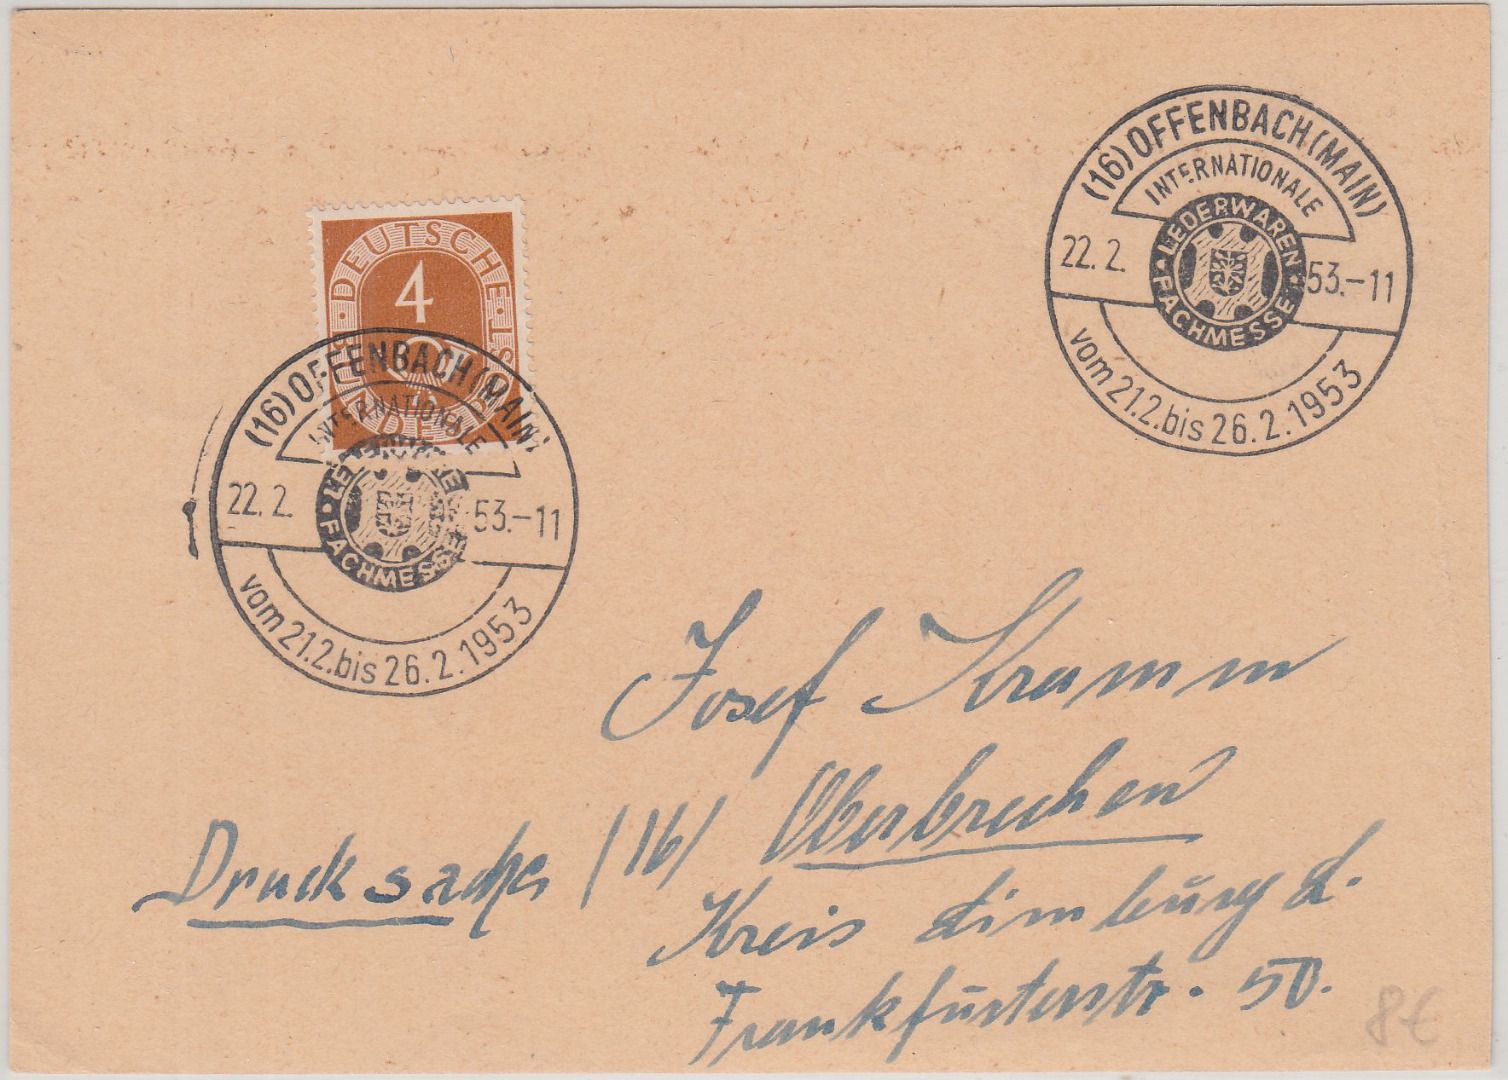 (16) OFFENBACH (MAIN)
INTERNATIONALE
LEDERWAREN
FACHMESSE
22. 2. 53.-11
vom 21.2. bis 26.2.1953
DEUTSCHE
4
(16) OFFENBACH (MAIN)
INTERNATIONALE
22. 2. 53.-11
FACHMESSE
vom 21.2. bis 26.2.1953
Josef Kramm
Drucksache /16/ Oberbrechen
Kreis Limburg L.
Frankfurterstr. 50.
8€